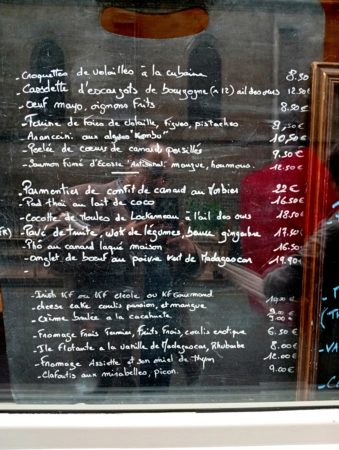 - Croquettes de volailles à la cubaine 8.50
- Cassolette d'escargots de bourgogne (x 12) ail des ours 12.50€
- Oeuf mayo, oignons frits 8.50€
- Terrine de foies de volaille, figues, pistaches 9,50€
- Arancini aux algues "Kombu" 10,50€
- Poêlée de coeurs de canards persillés 9.50€
- Saumon fumé d'Ecosse "Artisanal" mangue, houmous. 12.50€
- Parmentier de confit de canard au Morbier 22€
- Pad thaï au lait de coco 16.50€
- Cocotte de Moules de Locquemeau à l'ail des ours 18.50€
- Pavé de truite, wok de légumes, beurre gingembre 17.50€
- Phô au canard laqué maison 16.50€
- onglet de boeuf au poivre vert de Madagascar 19.90€
-
- Irish Kf ou Kf créole ou Kf Gourmand 10.00€
- cheese cake coulis passion, et mangue
- Crème brulée à la cacahuète
- Fromage Frais Fermier, Fruits Frais, coulis exotique 6.50€
- Ile flotante a la vanille de Madagascar, Rhubarbe 8.00€
- Fromage Assiette et son miel de Thym 12.00€
- Clafoutis aux mirabelles, picon. 9.00€